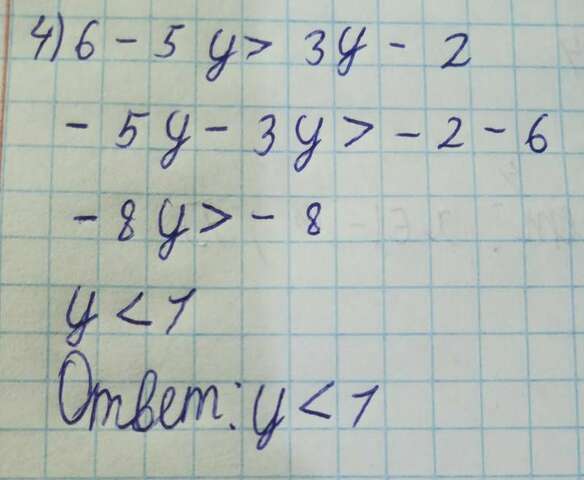 4) 6 - 5y > 3y - 2
- 5y - 3y > - 2 - 6
- 8y > - 8
y < 1
Ответ: y < 1